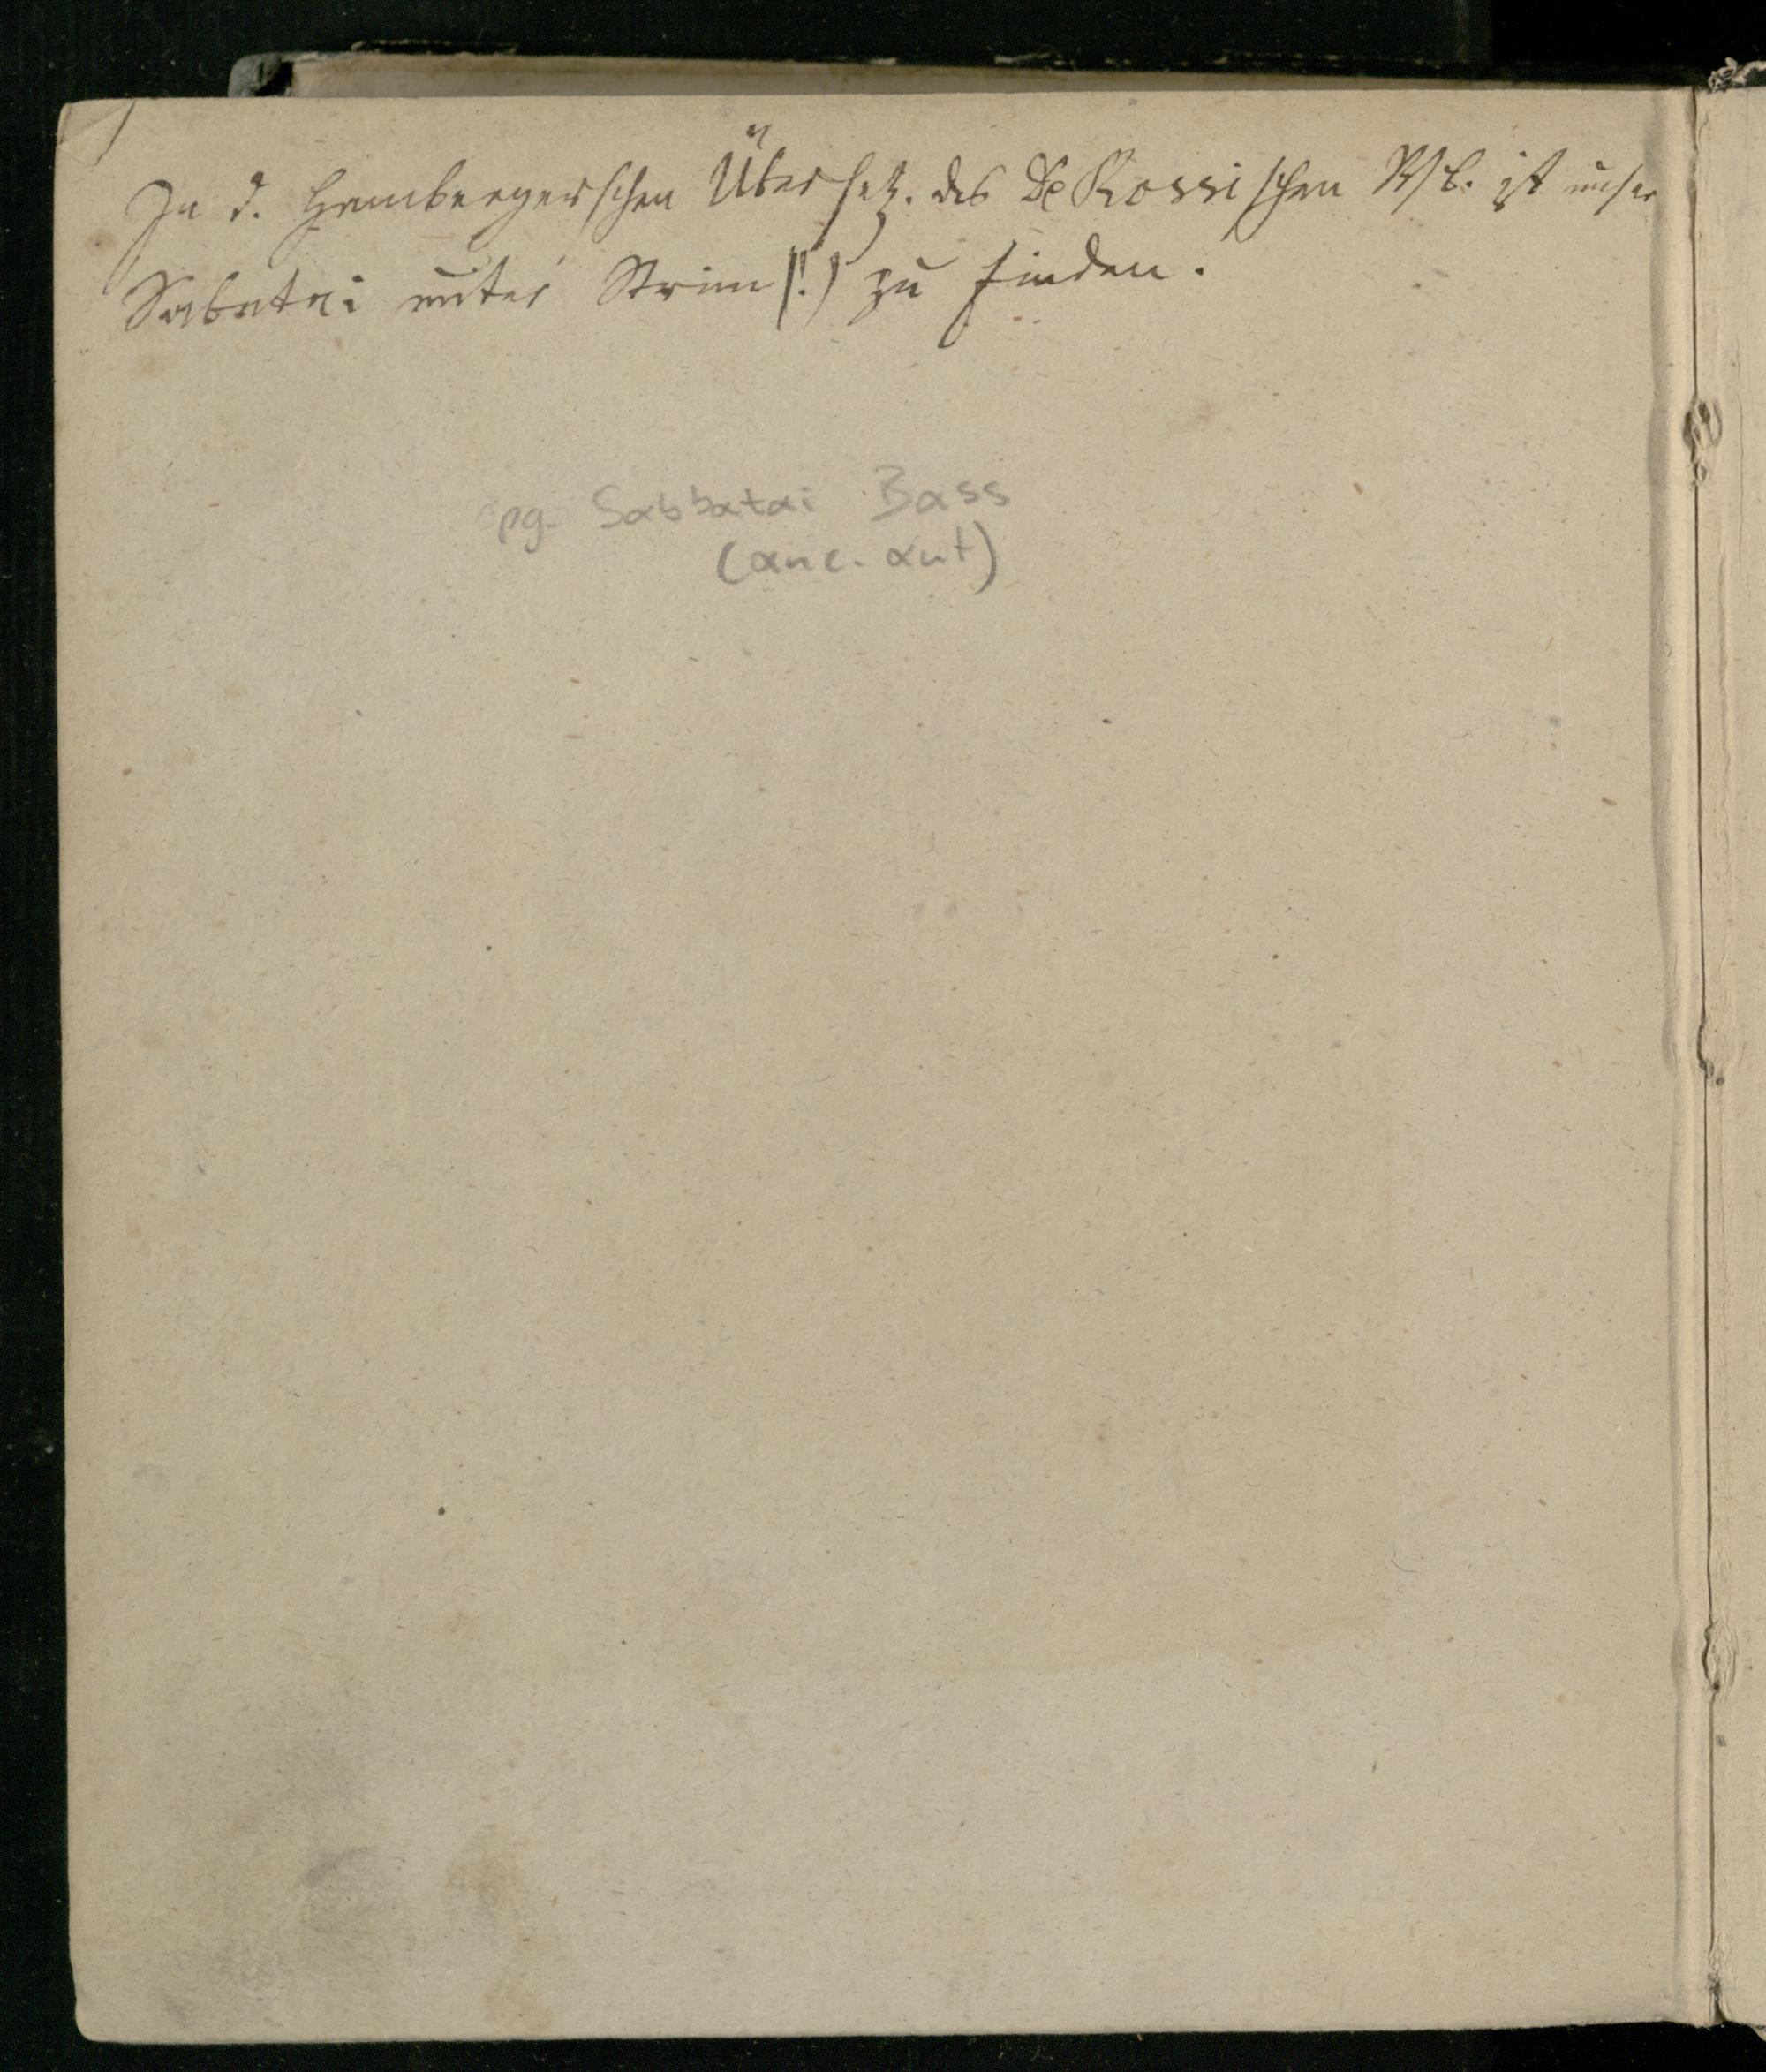 In d. Hambergerschen Übersetz. des De Rossischen Wb. ist unser
Sabatai unter Strim (!) zu finden.
pg. Sabbatai Bass
(anc. aut)